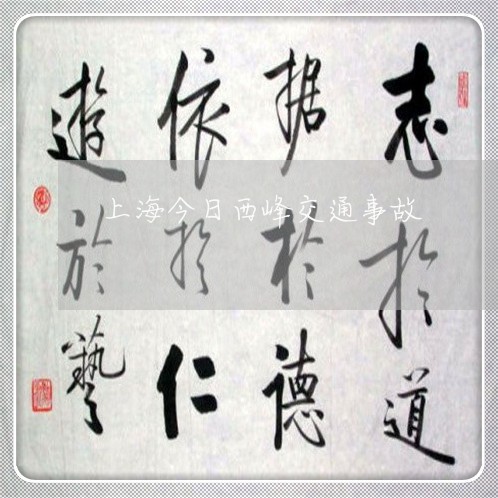 志於道
据於德
依於仁
遊於藝
上海今日西峰交通事故